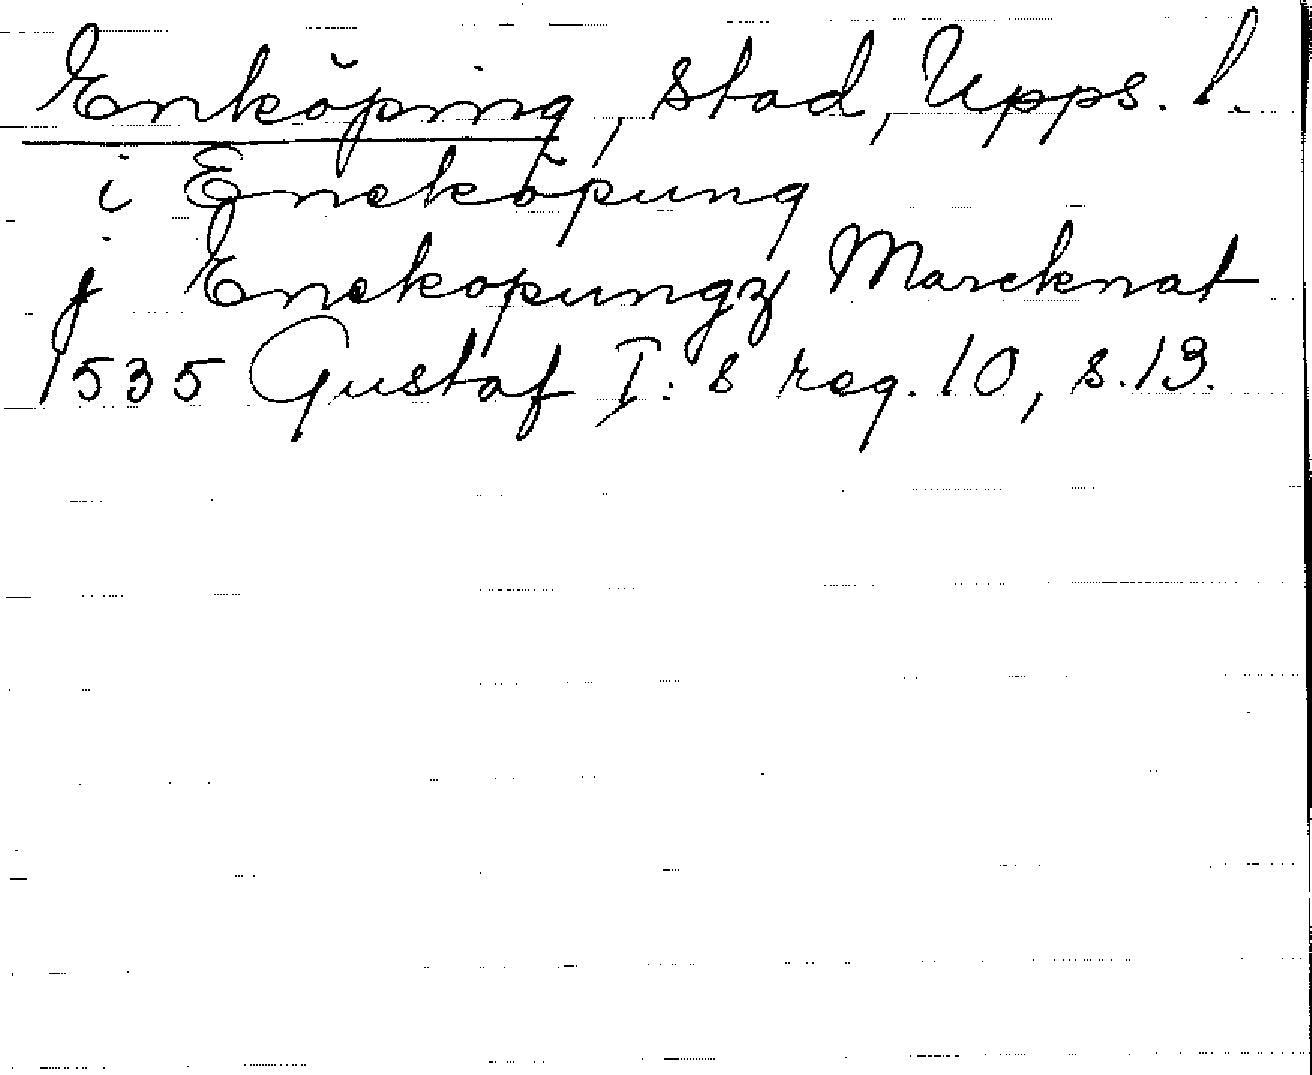 Enköping, stad, Upps. l.
i Eneköpung
j Enekopungz Marcknat
1535 Gustaf I:s reg. 10, s. 13.